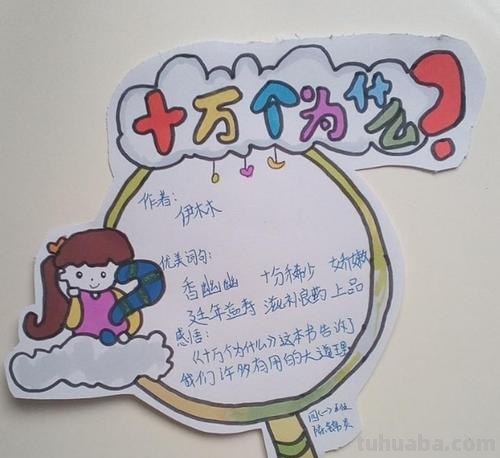 十万个为什么?
作者:
伊林木
优美词句:
香幽幽 十分稀少 娇嫩
延年益寿 滋补良药 上品
感悟:
《十万个为什么》这本书告诉了
我们许多有用的大道理
四(一)班
tuhuaba.com